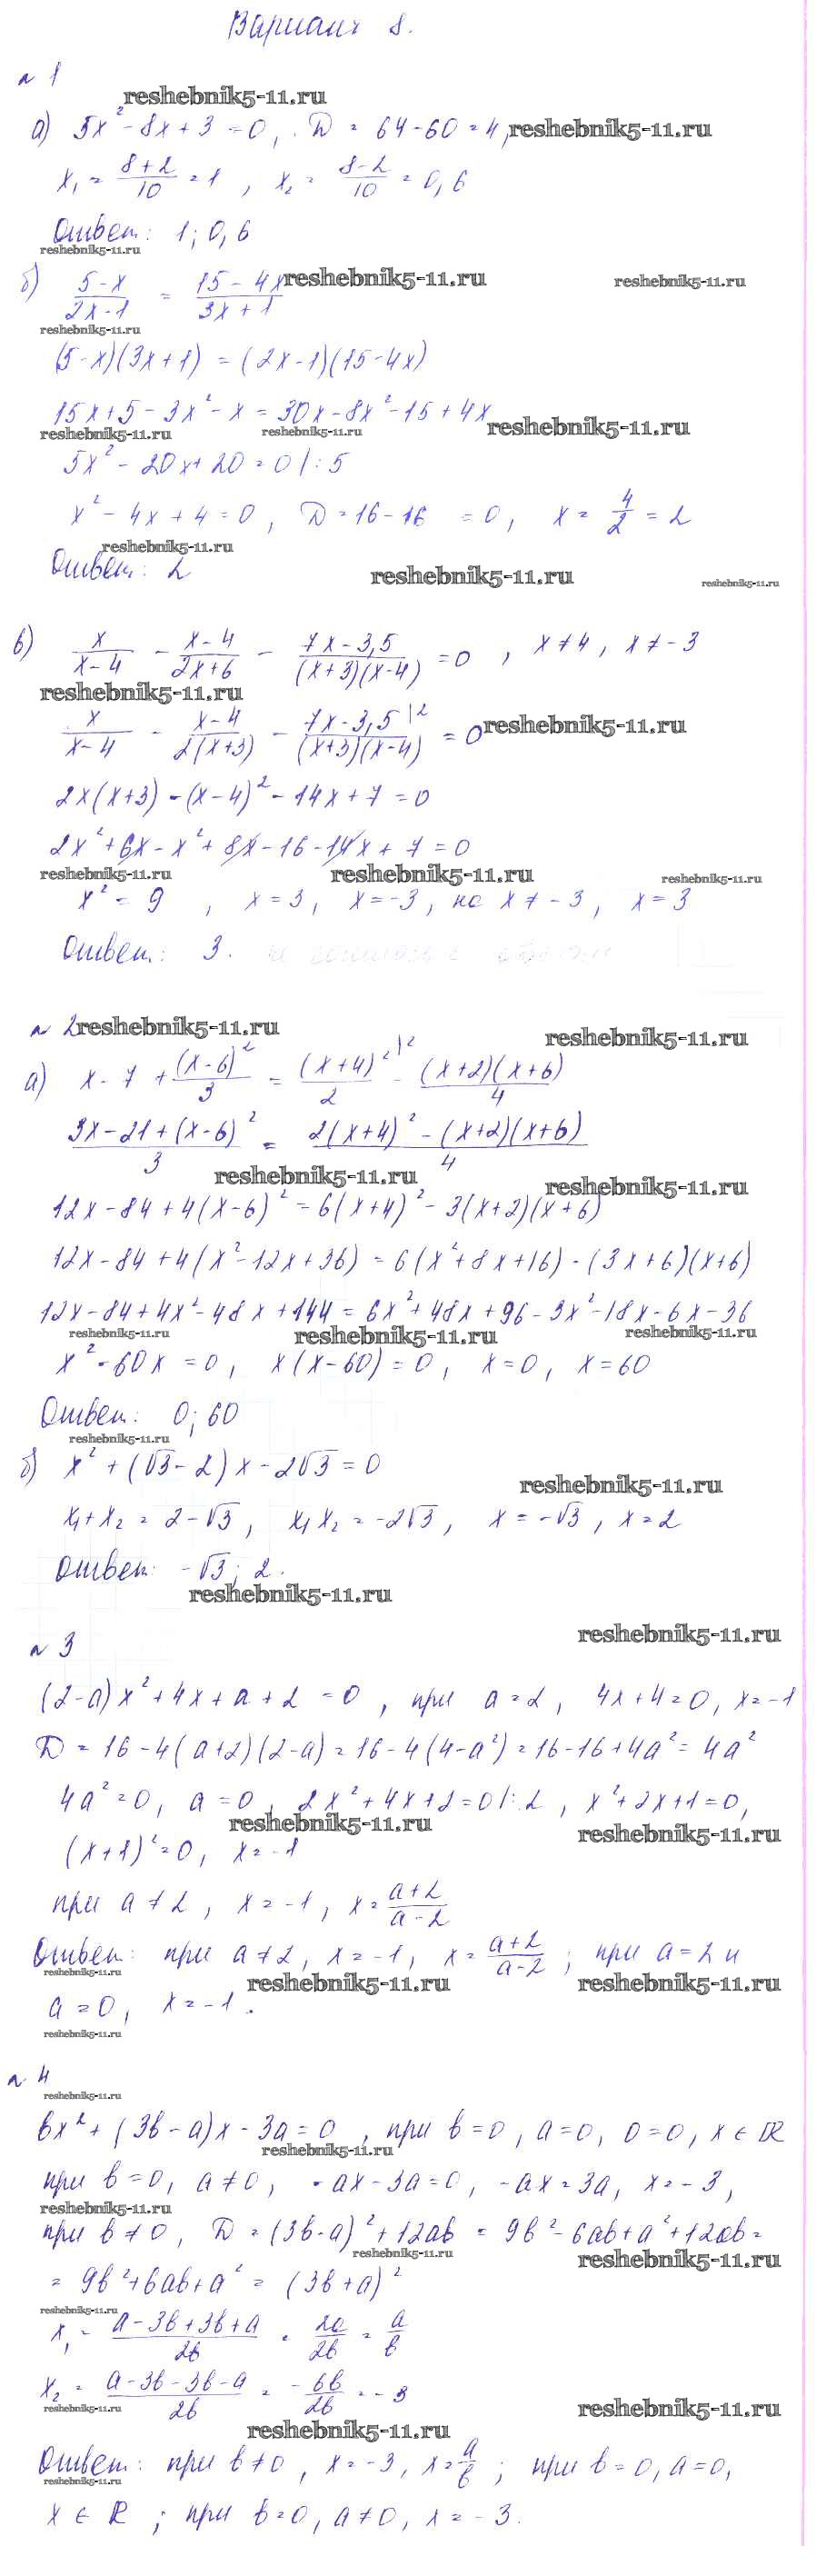 Вариант 8.
№ 1
reshebnik5-11.ru
а) 5x² - 8x + 3 = 0, D = 64 - 60 = 4, reshebnik5-11.ru
x₁ = (8+2)/10 = 1, x₂ = (8-2)/10 = 0,6
Ответ: 1; 0,6
reshebnik5-11.ru
б) (5-x)/(2x-1) = (15-4x)/(3x+1) reshebnik5-11.ru reshebnik5-11.ru
reshebnik5-11.ru
(5-x)(3x+1) = (2x-1)(15-4x)
15x+5-3x²-x = 30x-8x²-15+4x
reshebnik5-11.ru reshebnik5-11.ru reshebnik5-11.ru
5x² - 20x + 20 = 0 |:5
x² - 4x + 4 = 0, D = 16-16 = 0, x = 4/2 = 2
reshebnik5-11.ru
Ответ: 2 reshebnik5-11.ru reshebnik5-11.ru
в) x/(x-4) - (x-4)/(2x+6) - (7x-3,5)/((x+3)(x-4)) = 0, x≠4, x≠-3
reshebnik5-11.ru
x/(x-4) - (x-4)/(2(x+3)) - (7x-3,5|²)/((x+3)(x-4)) = 0 reshebnik5-11.ru
2x(x+3) - (x-4)² - 14x + 7 = 0
2x² + 6x - x² + 8x - 16 - 14x + 7 = 0
reshebnik5-11.ru reshebnik5-11.ru reshebnik5-11.ru
x² = 9, x = 3, x = -3, но x ≠ -3, x = 3
Ответ: 3.
№ 2 reshebnik5-11.ru reshebnik5-11.ru
а) x - 7 + (x-6)²/3 = (x+4)²|²/2 - (x+2)(x+6)/4
(3x-21+(x-6)²)/3 = (2(x+4)²-(x+2)(x+6))/4
reshebnik5-11.ru reshebnik5-11.ru
12x-84+4(x-6)² = 6(x+4)² - 3(x+2)(x+6)
12x-84+4(x²-12x+36) = 6(x²+8x+16) - (3x+6)(x+6)
12x-84+4x²-48x+144 = 6x²+48x+96-3x²-18x-6x-36
reshebnik5-11.ru reshebnik5-11.ru reshebnik5-11.ru
x² - 60x = 0, x(x-60) = 0, x = 0, x = 60
Ответ: 0; 60
reshebnik5-11.ru
б) x² + (√3-2)x - 2√3 = 0
reshebnik5-11.ru
x₁+x₂ = 2-√3, x₁x₂ = -2√3, x = -√3, x = 2
Ответ: -√3; 2.
reshebnik5-11.ru
reshebnik5-11.ru
№ 3
(2-a)x²+4x+a+2 = 0, при a = 2, 4x+4 = 0, x = -1
D = 16-4(a+2)(2-a) = 16-4(4-a²) = 16-16+4a² = 4a²
4a² = 0, a = 0, 2x²+4x+2 = 0 |:2, x²+2x+1 = 0,
reshebnik5-11.ru reshebnik5-11.ru
(x+1)² = 0, x = -1
при a ≠ 2, x = -1, x = (a+2)/(a-2)
Ответ: при a ≠ 2, x = -1, x = (a+2)/(a-2); при a = 2 и
reshebnik5-11.ru reshebnik5-11.ru reshebnik5-11.ru
a = 0, x = -1.
reshebnik5-11.ru
№ 4
reshebnik5-11.ru
bx² + (3b-a)x - 3a = 0, при b = 0, a = 0, 0 = 0, x ∈ R
reshebnik5-11.ru
при b = 0, a ≠ 0, -ax-3a = 0, -ax = 3a, x = -3,
reshebnik5-11.ru
при b ≠ 0, D = (3b-a)² + 12ab = 9b²-6ab+a²+12ab =
reshebnik5-11.ru reshebnik5-11.ru
= 9b²+6ab+a² = (3b+a)²
reshebnik5-11.ru
x₁ = (a-3b+3b+a)/2b = 2a/2b = a/b
x₂ = (a-3b-3b-a)/2b = -6b/2b = -3
reshebnik5-11.ru reshebnik5-11.ru
reshebnik5-11.ru
Ответ: при b ≠ 0, x = -3, x = a/b; при b = 0, a = 0,
reshebnik5-11.ru
x ∈ R; при b = 0, a ≠ 0, x = -3.